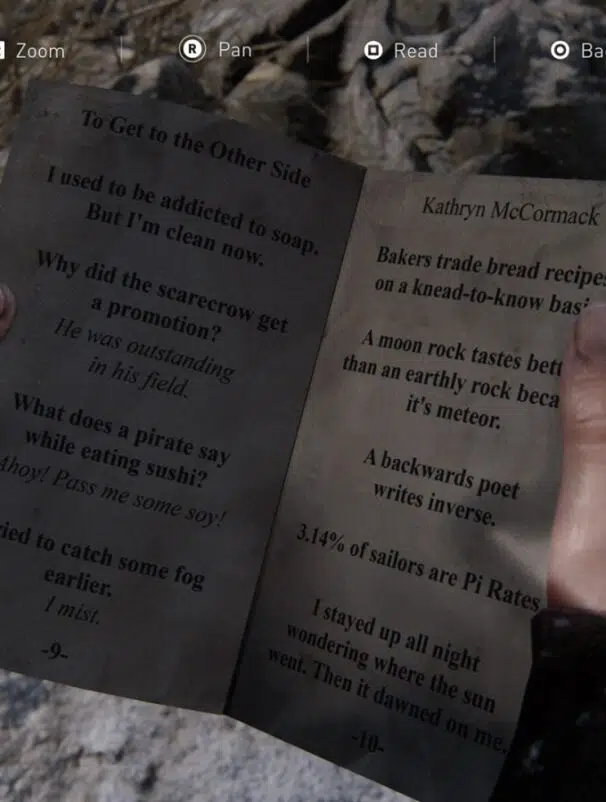 Zoom
R
Pan
Read
Ba
To Get to the Other Side
I used to be addicted to soap.
But I'm clean now.
Why did the scarecrow get
a promotion?
He was outstanding
in his field.
What does a pirate say
while eating sushi?
Ahoy! Pass me some soy!
ried to catch some fog
earlier.
I mist.
-9-
Kathryn McCormack
Bakers trade bread recipes
on a knead-to-know basi
A moon rock tastes bett
than an earthly rock beca
it's meteor.
A backwards poet
writes inverse.
3.14% of sailors are Pi Rates
I stayed up all night
wondering where the sun
went. Then it dawned on me.
-10-